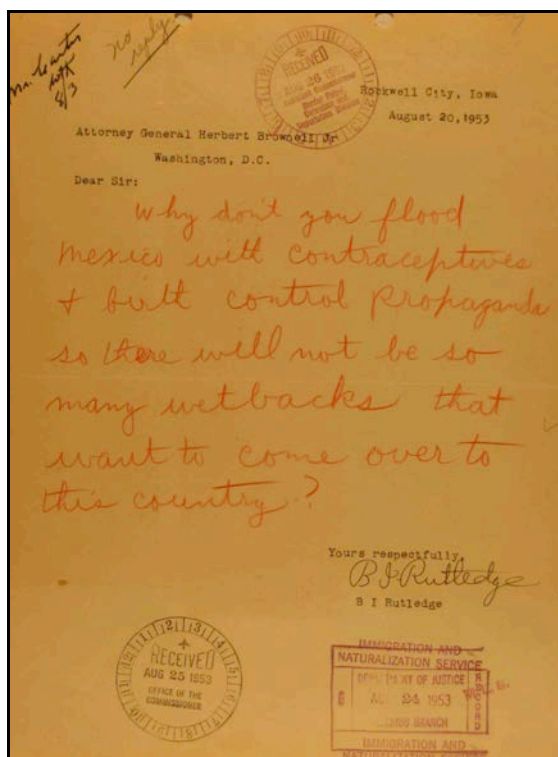 no
reply
RECEIVED
AUG 26 1953
Rockwell City, Iowa
August 20, 1953
Attorney General Herbert Brownell Jr
Washington, D.C.
Dear Sir:
Why don't you flood
Mexico with contraceptives
& birth control propaganda
so there will not be so
many wetbacks that
want to come over to
this country?
Yours respectfully,
B I Rutledge
B I Rutledge
RECEIVED
AUG 25 1953
OFFICE OF THE
COMMISSIONER
IMMIGRATION AND
NATURALIZATION SERVICE
DEPARTMENT OF JUSTICE
1953
BRANCH
RECORD
IMMIGRATION AND
NATURALIZATION SERVICE